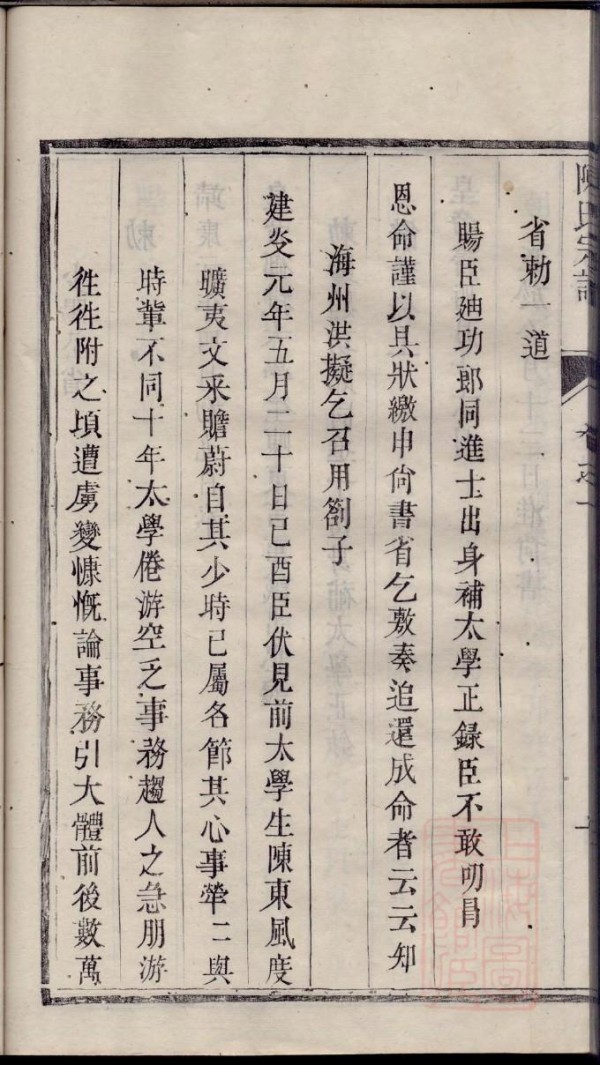 陳氏宗譜
卷之一
省勅一道
賜臣廸功郎同進士出身補太學正録臣不敢叨冒
恩命謹以具狀繳申尙書省乞敷奏追還成命者云云知
海州洪擬乞召用劄子
建炎元年五月二十日己酉臣伏見前太學生陳東風度
曠夷文采贍蔚自其少時已属名節其心事犖二與
時輩不同十年太學倦游空乏事務趨人之急朋游
徃徃附之頃遭虜變慷慨論事務引大體前後數萬